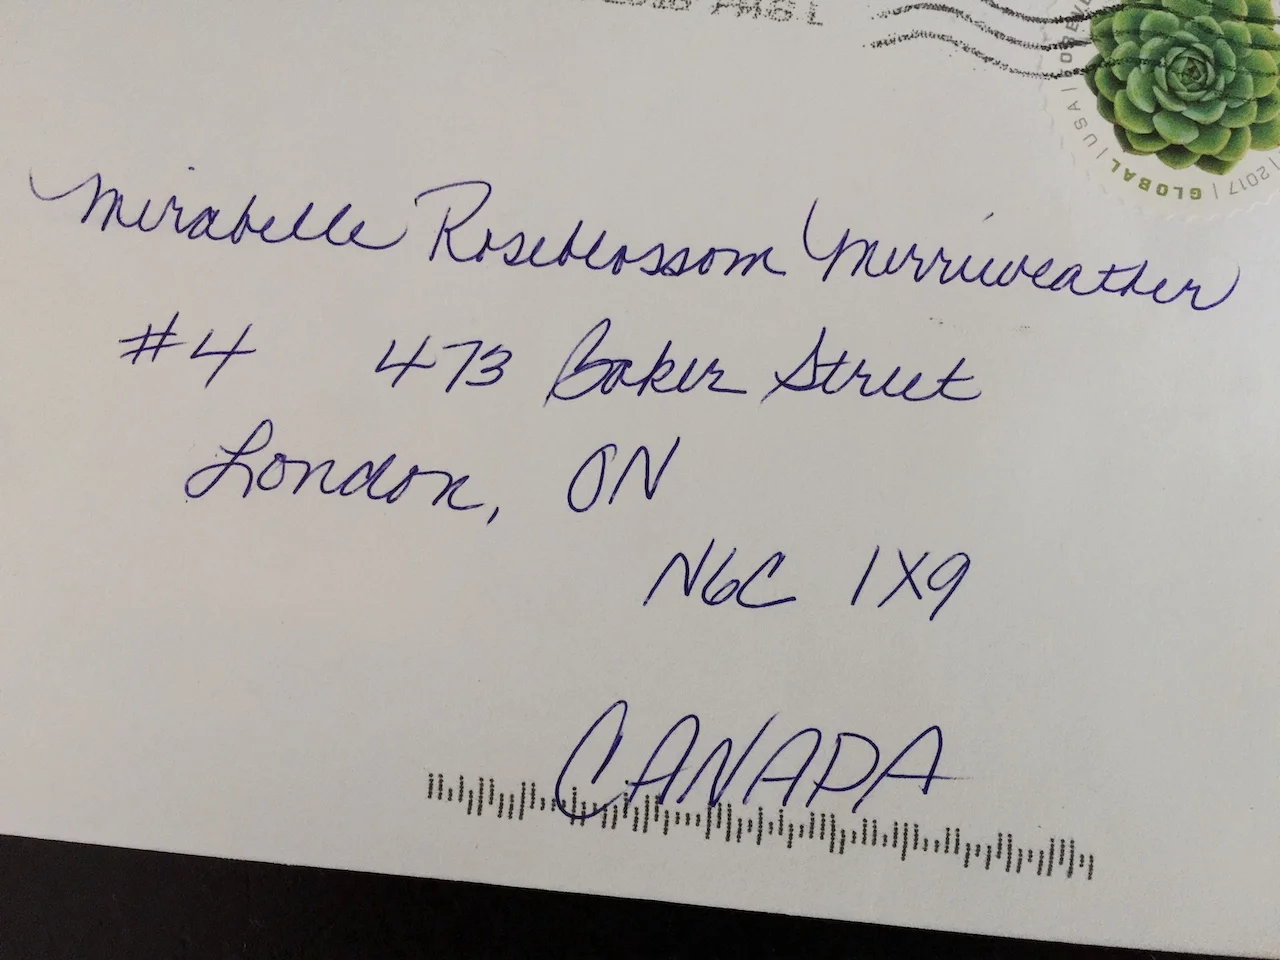 GLOBAL | USA | FOREVE
| 2017 |
Mirabelle Roseblossom Merriweather
#4 473 Baker Street
London, ON
N6C 1X9
CANADA